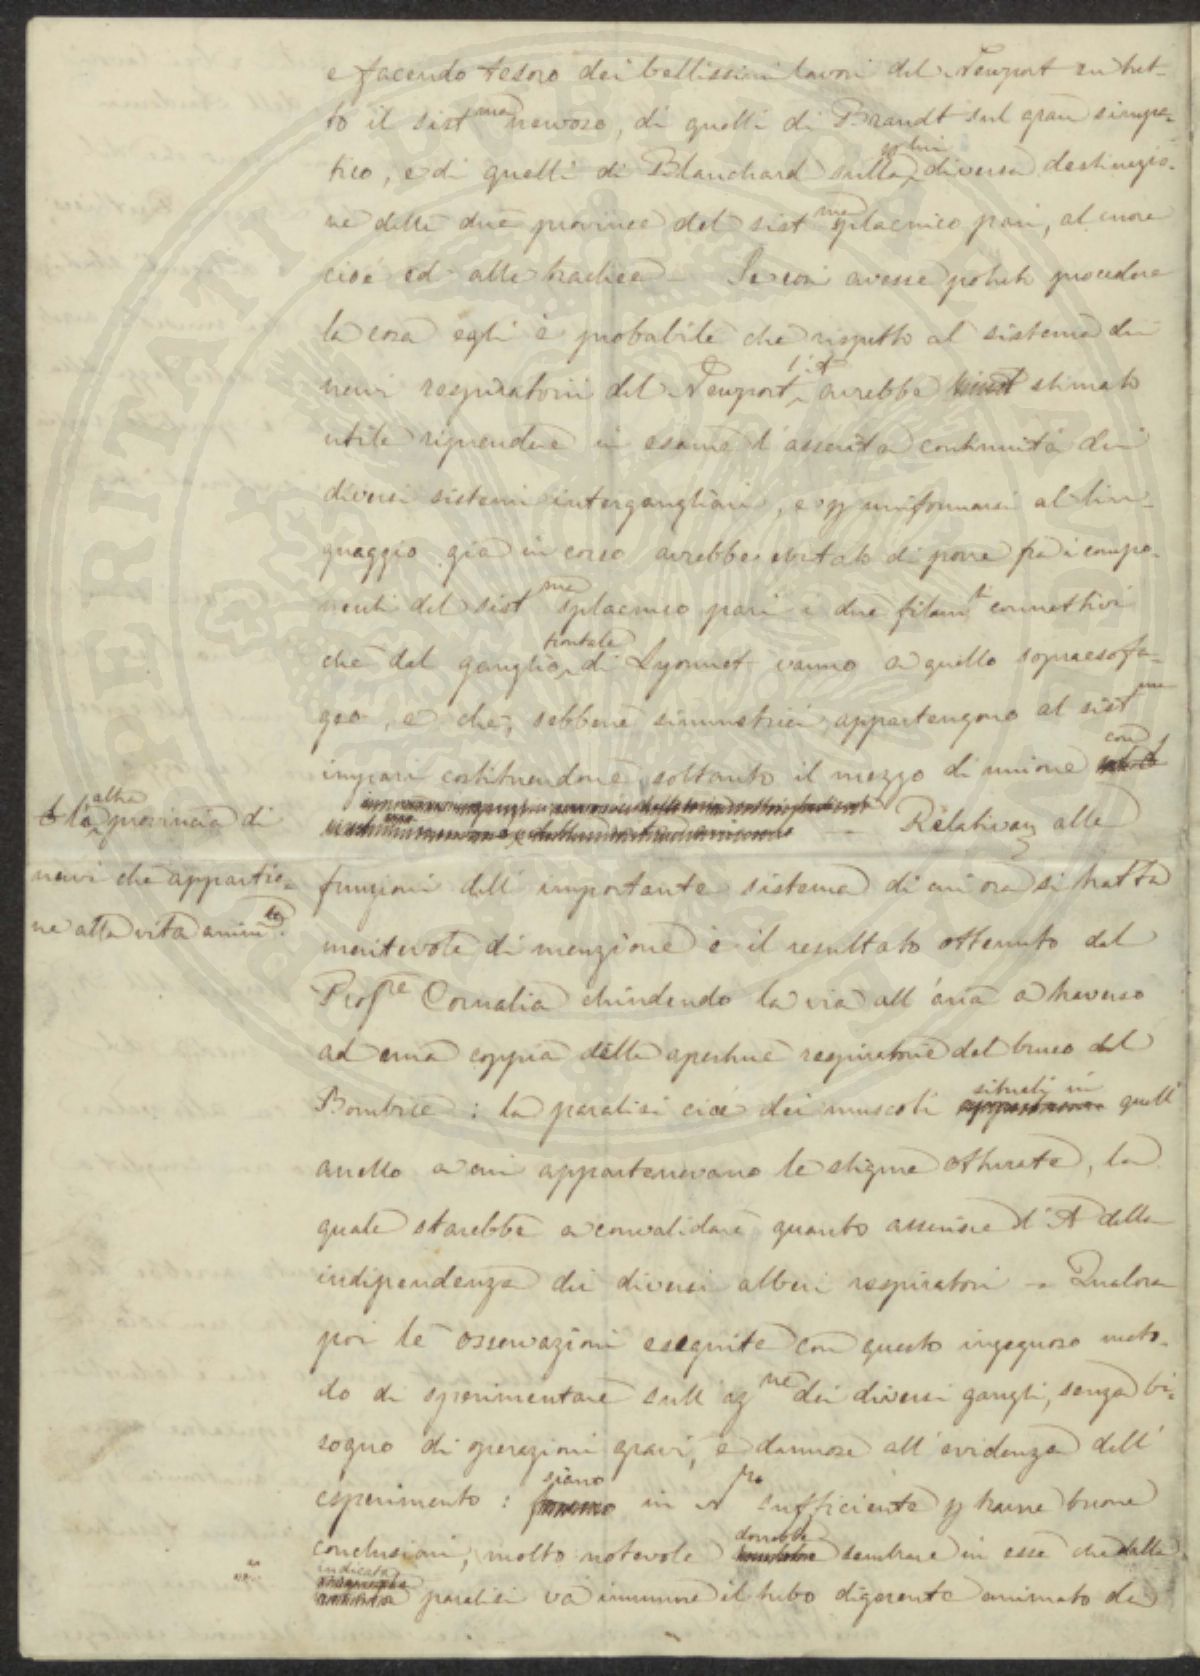 e facendo tesoro dei bellissimi lavori del Newport su tut-
to il sist^ma nervoso, di quelli di Brandt sul gran simpa-
tico, e di quelli di Blanchard sulla diversa destinazio-
ne delle due province del sist^ma splacnico pari, al cuore
cioè ed alle trachee — Se così avesse potuto procedere
la cosa egli è probabile che rispetto al sistema dei
nervi respiratorii del Newport, l'A avrebbe stimato
utile riprendere in esame l'asserita continuità dei
diversi sistemi intergangliari, e p uniformarsi al lin-
guaggio già in corso avrebbe evitato di porre fra i compo-
nenti del sist^ma splacnico pari i due filam^ti connettivi
che dal ganglio frontale di Lyonnet vanno a quello sopraesofa-
geo, e che, sebbene simmetrici, appartengono al sist^ma
impari costituendone soltanto il mezzo di unione con
la altra provincia di
nervi che appartie-
ne alla vita anim^le.
— Relativam alle
funzioni dell'importante sistema di cui ora si tratta
meritevole di menzione è il resultato ottenuto dal
Prof^re Cornalia chiudendo la via all'aria a traverso
ad una coppia delle aperture respiratorie del bruco del
Bombice: la paralisi cioè dei muscoli situati in quell'
anello a cui appartenevano le stigme otturate, la
quale starebbe a convalidare quanto asserisce l'A della
indipendenza dei diversi alberi respiratori — Qualora
poi le osservazioni eseguite con questo ingegnoso meto-
do di sperimentare sull'az^ne dei diversi gangli, senza bi-
sogno di operazioni gravi, e dannose all'evidenza dell'
esperimento: siano in N^ro sufficiente p trarne buone
conclusioni, molto notevole dovrebbe sembrare in esse che dalla
indicata paralisi va immune il tubo digerente animato da